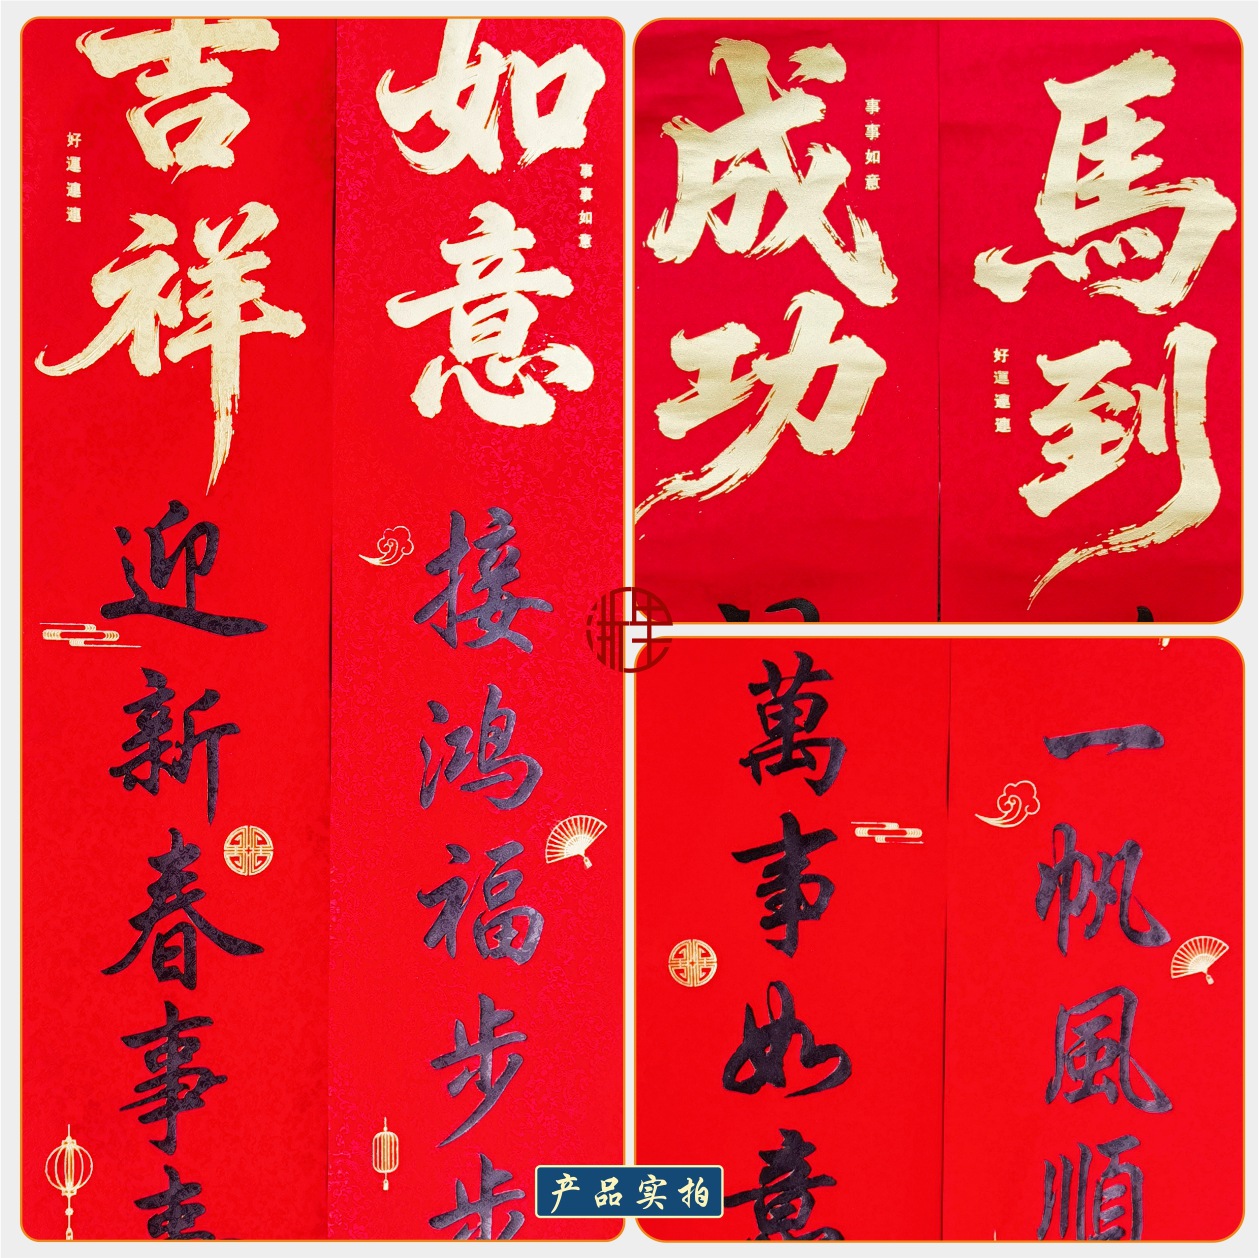 吉祥
好運連連
迎新春事事
如意
事事如意
接鸿福步步
馬到
好運連連
成功
事事如意
一帆風順
萬事如意
产品实拍